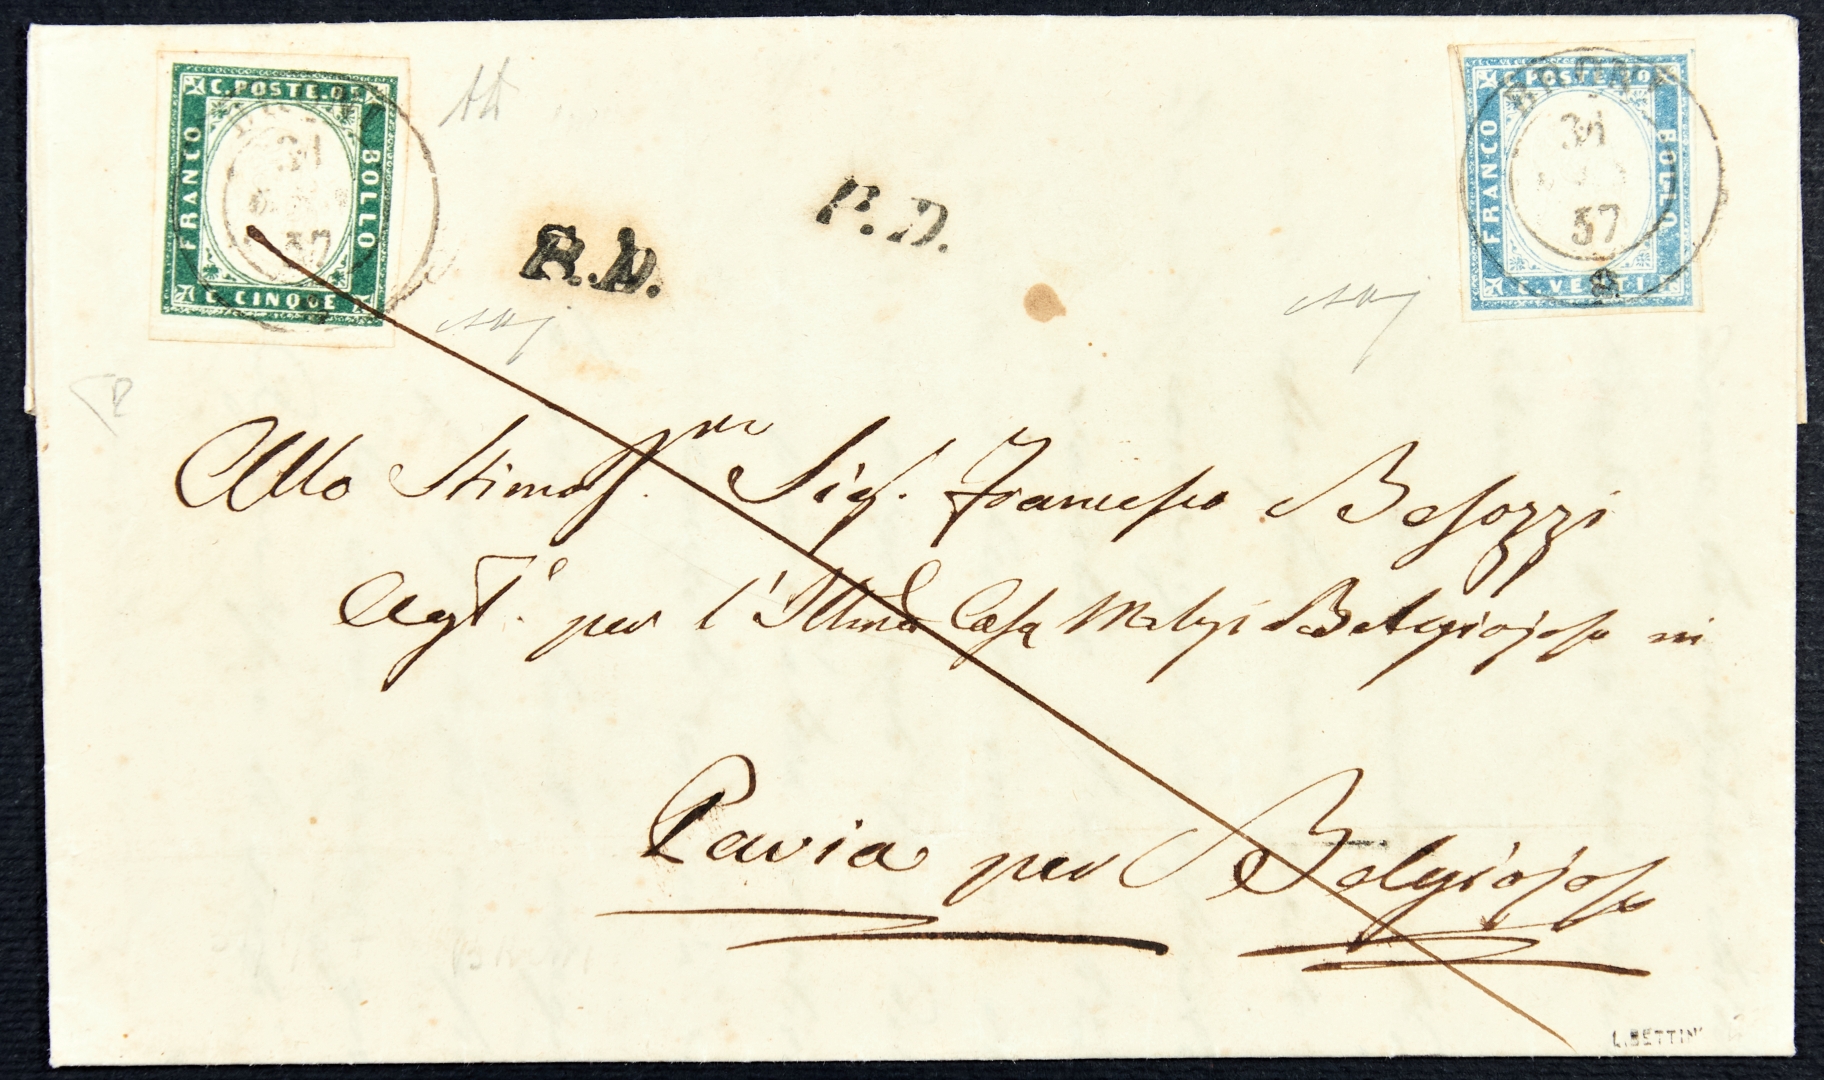 C. POSTE. 
FRANCO
BOLLO
C. CINQUE
31
57
P.D.
C. POSTE. 
FRANCO
BOLLO
C. VENTI
BRONI
31
57
Allo Stimass.mo Sig. Francesco Besozzi
Agt.e per l'Illma Casa Melzi Belgiojoso in
Pavia per Belgiojoso
L. BETTINI